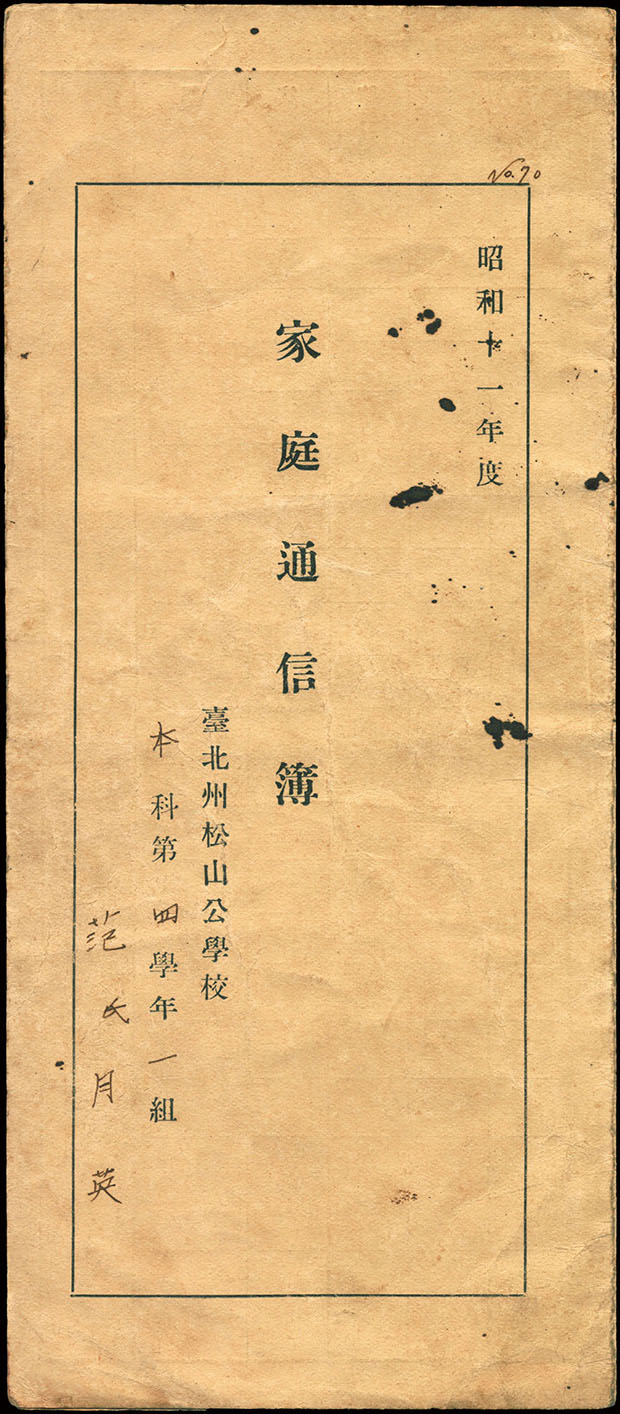 No.70
昭和十一年度
家庭通信簿
臺北州松山公學校
本科第四學年一組
范氏月英